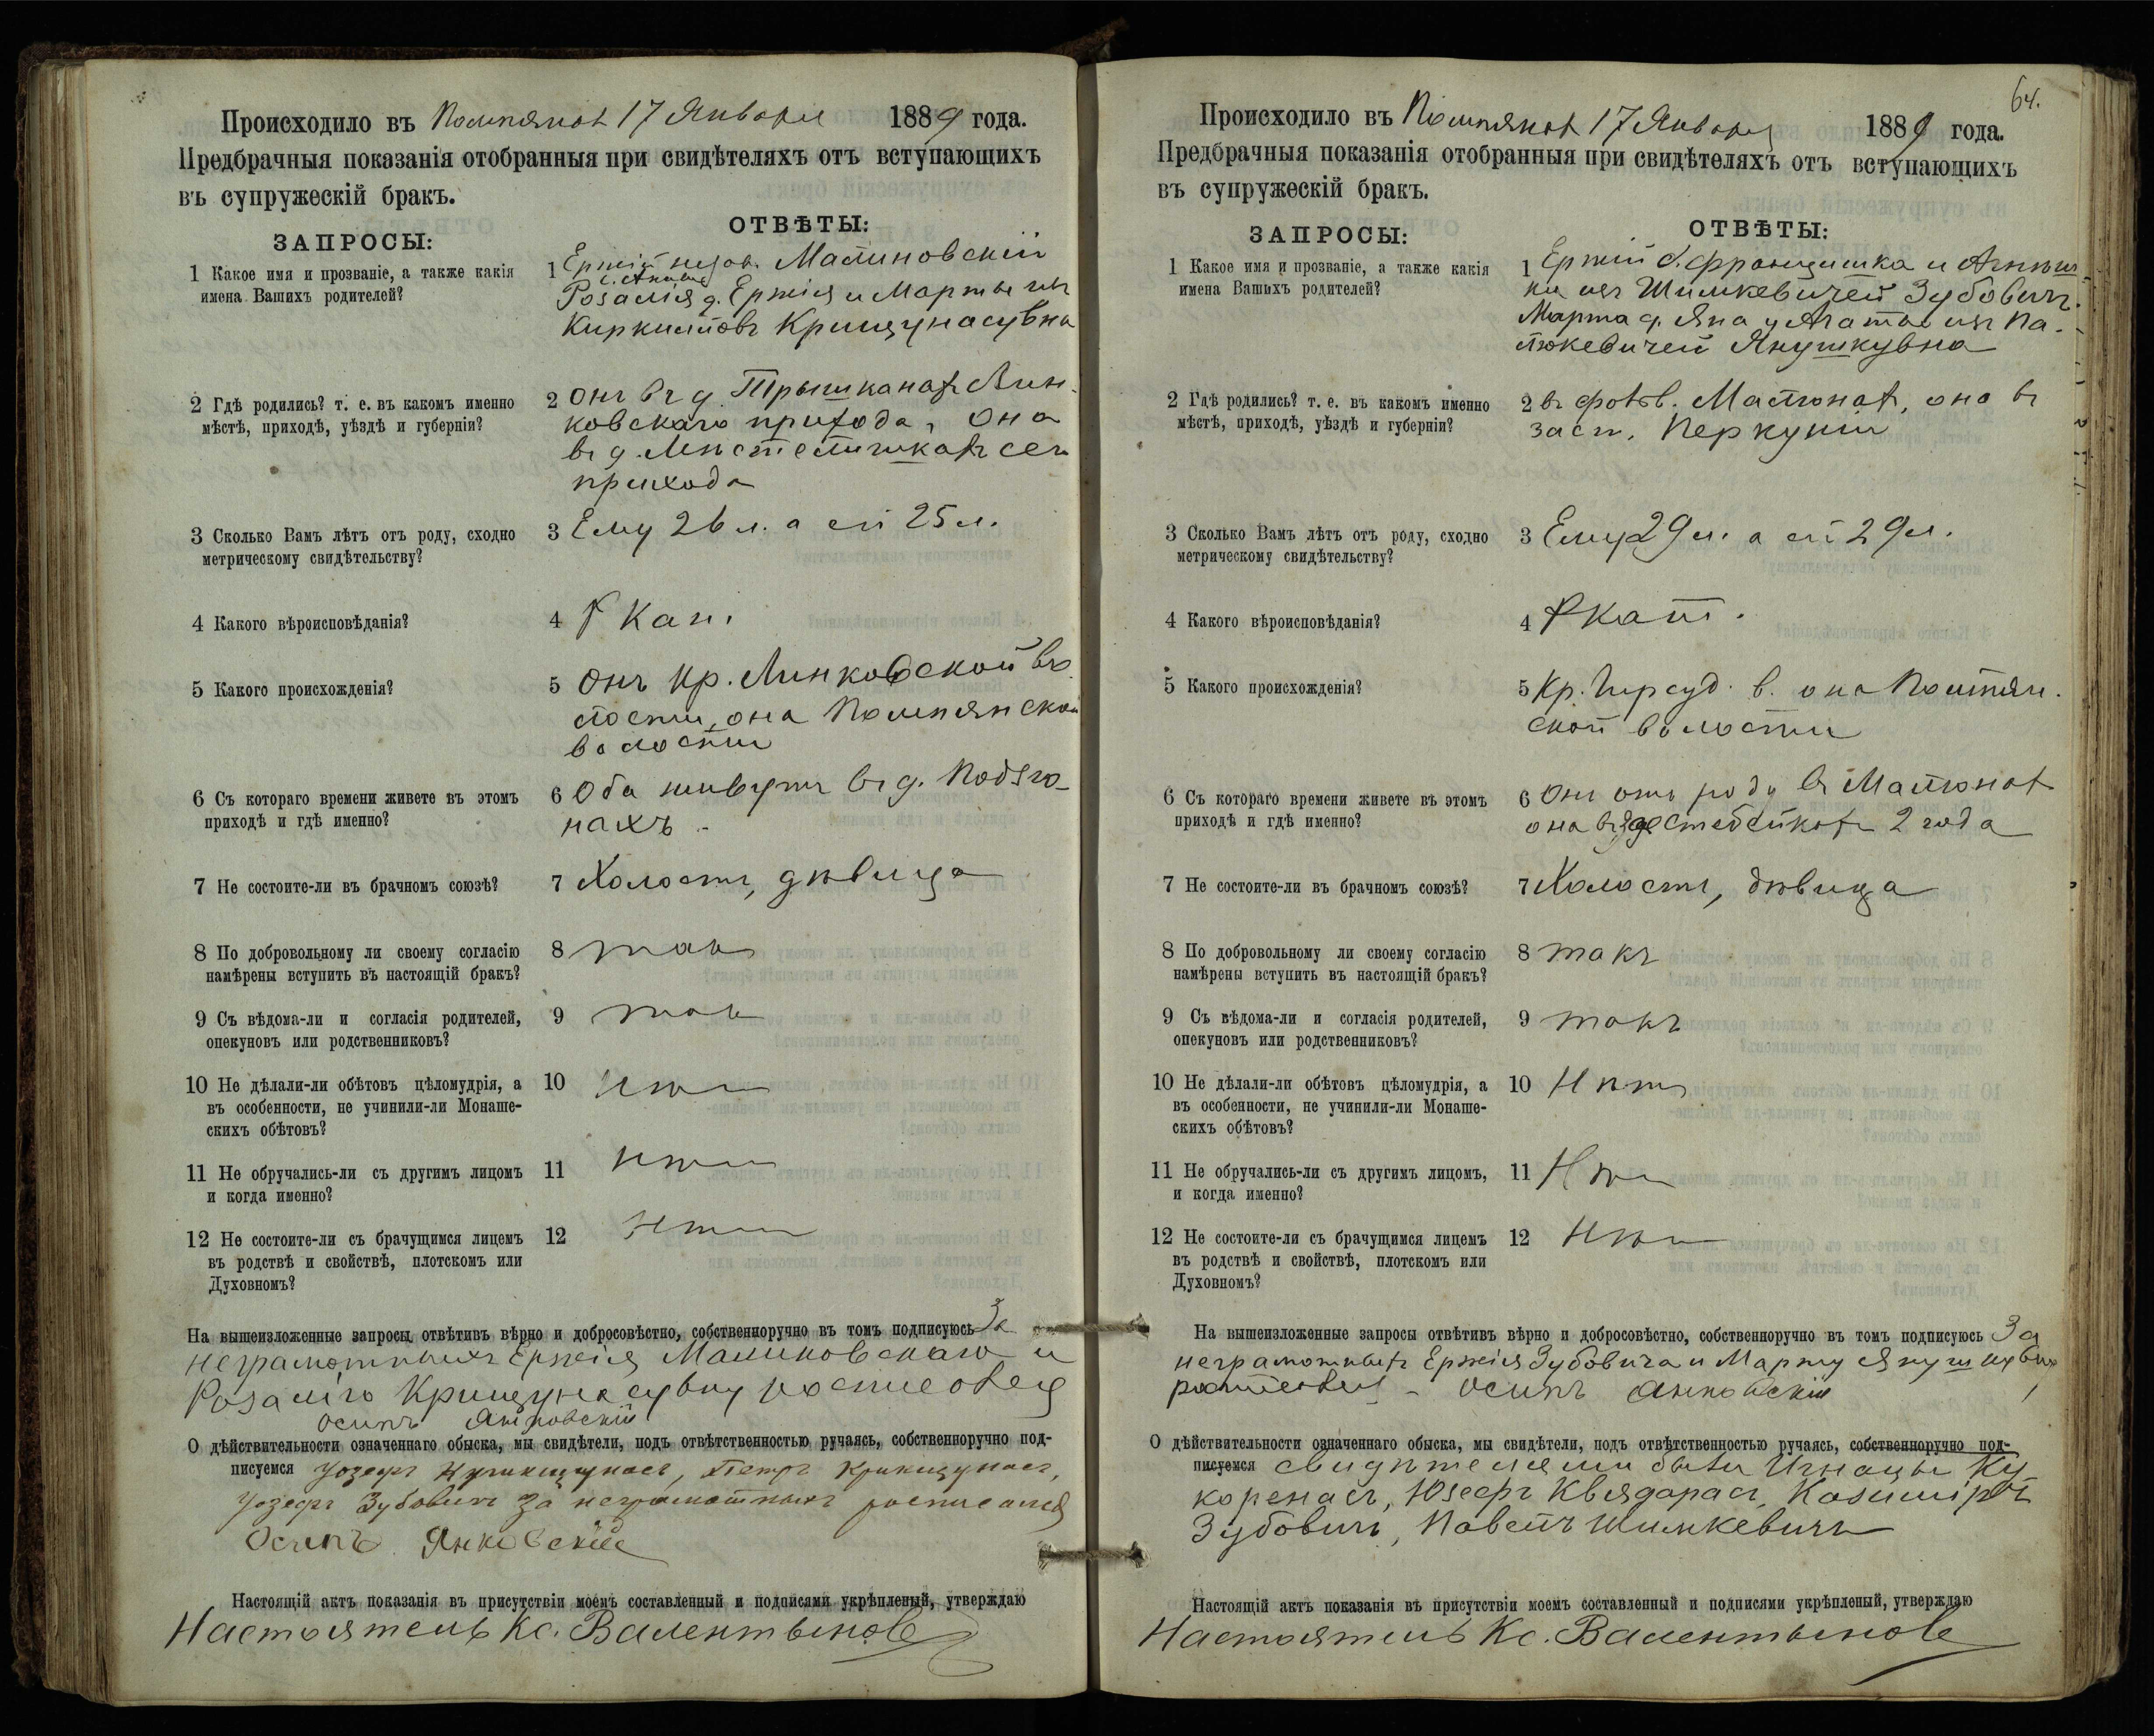 Происходило въ Помпянах 17 Января 1889 года.
Предбрачныя показанія отобранныя при свидѣтеляхъ отъ вступающихъ
въ супружескій бракъ.
ЗАПРОСЫ: ОТВѢТЫ:
1 Какое имя и прозваніе, а также какія
имена Вашихъ родителей?
1 Ержій незак. Малиновскій
Розалія д. Ержія и Марты изъ
Крищунасувна
2 Гдѣ родились? т. е. въ какомъ именно
мѣстѣ, приходѣ, уѣздѣ и губерніи?
2 Онъ въ д. Трышканах Лин-
ковскаго прихода, Она
въ д. сего
прихода
3 Сколько Вамъ лѣтъ отъ роду, сходно
метрическому свидѣтельству?
3 Ему 26 л. а ей 25 л.
4 Какого вѣроисповѣданія?
4 Р Кат.
5 Какого происхожденія?
5 Онъ кр. Линковской во-
лости, она Помпянской
волости
6 Съ котораго времени живете въ этомъ
приходѣ и гдѣ именно?
6 Оба живутъ въ д.
нахъ
7 Не состоите-ли въ брачномъ союзѣ?
7 Холостъ, дѣвица
8 По добровольному ли своему согласію
намѣрены вступить въ настоящій бракъ?
8 такъ
9 Съ вѣдома-ли и согласія родителей,
опекуновъ или родственниковъ?
9 такъ
10 Не дѣлали-ли обѣтовъ цѣломудрія, а
въ особенности, не учинили-ли Монаше-
скихъ обѣтовъ?
10 Нѣтъ
11 Не обручались-ли съ другимъ лицомъ
и когда именно?
11 Нѣтъ
12 Не состоите-ли съ брачущимся лицемъ
въ родствѣ и свойствѣ, плотскомъ или
Духовномъ?
12 Нѣтъ
На вышеизложенные запросы отвѣтивъ вѣрно и добросовѣстно, собственноручно въ томъ подписуюсь За
неграмотныхъ Ержія Малиновскаго и
Розалію Крищунасувну
Осипъ Янковскій
О дѣйствительности означеннаго обыска, мы свидѣтели, подъ отвѣтственностью ручаясь, собственноручно под-
писуемся Іозефъ Петръ
Іозефъ Зубовичъ за неграмотныхъ росписался
Осипъ Янковскій
Настоящій актъ показанія въ присутствіи моемъ составленный и подписями укрѣпленый, утверждаю
Настоятель Кс. Валентынове
64.
Происходило въ Помпянах 17 Января 1889 года.
Предбрачныя показанія отобранныя при свидѣтеляхъ отъ вступающихъ
въ супружескій бракъ.
ЗАПРОСЫ: ОТВѢТЫ:
1 Какое имя и прозваніе, а также какія
имена Вашихъ родителей?
1 Ержій с. Францишка и Агнѣш-
ки изъ Шимкевичей Зубовичъ.
Марта д. Яна и Агаты изъ Па-
люкевичей Янушкувна
2 Гдѣ родились? т. е. въ какомъ именно
мѣстѣ, приходѣ, уѣздѣ и губерніи?
2 въ Малюнах, она въ
заст. Перкуніи
3 Сколько Вамъ лѣтъ отъ роду, сходно
метрическому свидѣтельству?
3 Ему 29 л. а ей 29 л.
4 Какого вѣроисповѣданія?
4 Р Кат.
5 Какого происхожденія?
5 Кр. в. она Помпян-
ской волости
6 Съ котораго времени живете въ этомъ
приходѣ и гдѣ именно?
6 Онъ отъ роду въ Малюнах
она въ 2 года
7 Не состоите-ли въ брачномъ союзѣ?
7 Холостъ, дѣвица
8 По добровольному ли своему согласію
намѣрены вступить въ настоящій бракъ?
8 такъ
9 Съ вѣдома-ли и согласія родителей,
опекуновъ или родственниковъ?
9 такъ
10 Не дѣлали-ли обѣтовъ цѣломудрія, а
въ особенности, не учинили-ли Монаше-
скихъ обѣтовъ?
10 Нѣтъ
11 Не обручались-ли съ другимъ лицомъ,
и когда именно?
11 Нѣтъ
12 Не состоите-ли съ брачущимся лицемъ
въ родствѣ и свойствѣ, плотскомъ или
Духовномъ?
12 Нѣтъ
На вышеизложенные запросы отвѣтивъ вѣрно и добросовѣстно, собственноручно въ томъ подписуюсь За
неграмотных Ержія Зубовича и Марту Янушкувну
Осипъ Янковскій
О дѣйствительности означеннаго обыска, мы свидѣтели, подъ отвѣтственностью ручаясь, собственноручно под-
писуемся свидѣтелями были Игнацы Ку
коренасъ, Юзефъ Квядарасъ, Казимиръ
Зубовичъ, Павелъ Шимкевичъ
Настоящій актъ показанія въ присутствіи моемъ составленный и подписями укрѣпленый, утверждаю
Настоятель Кс. Валентынове